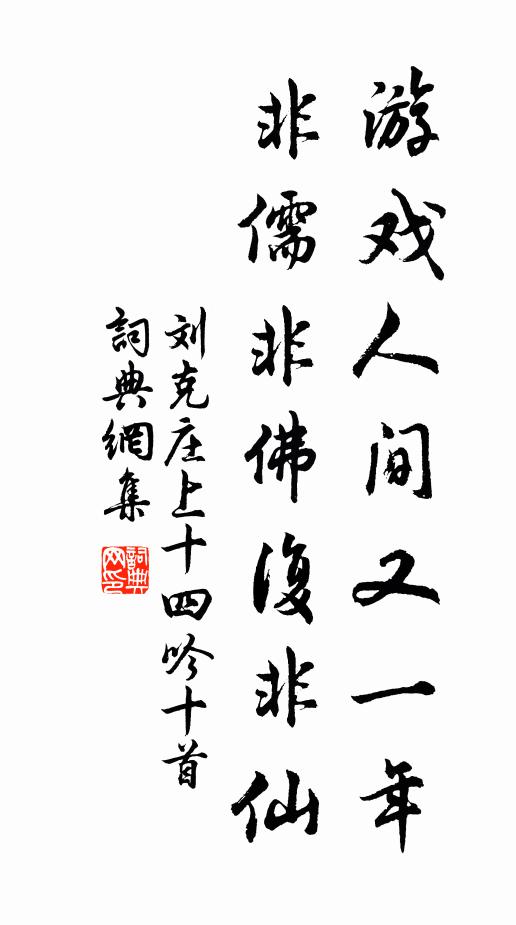 游戏人间又一年
非儒非佛復非仙
刘克庄上十四吟十首
詞典網集
詞典
网印